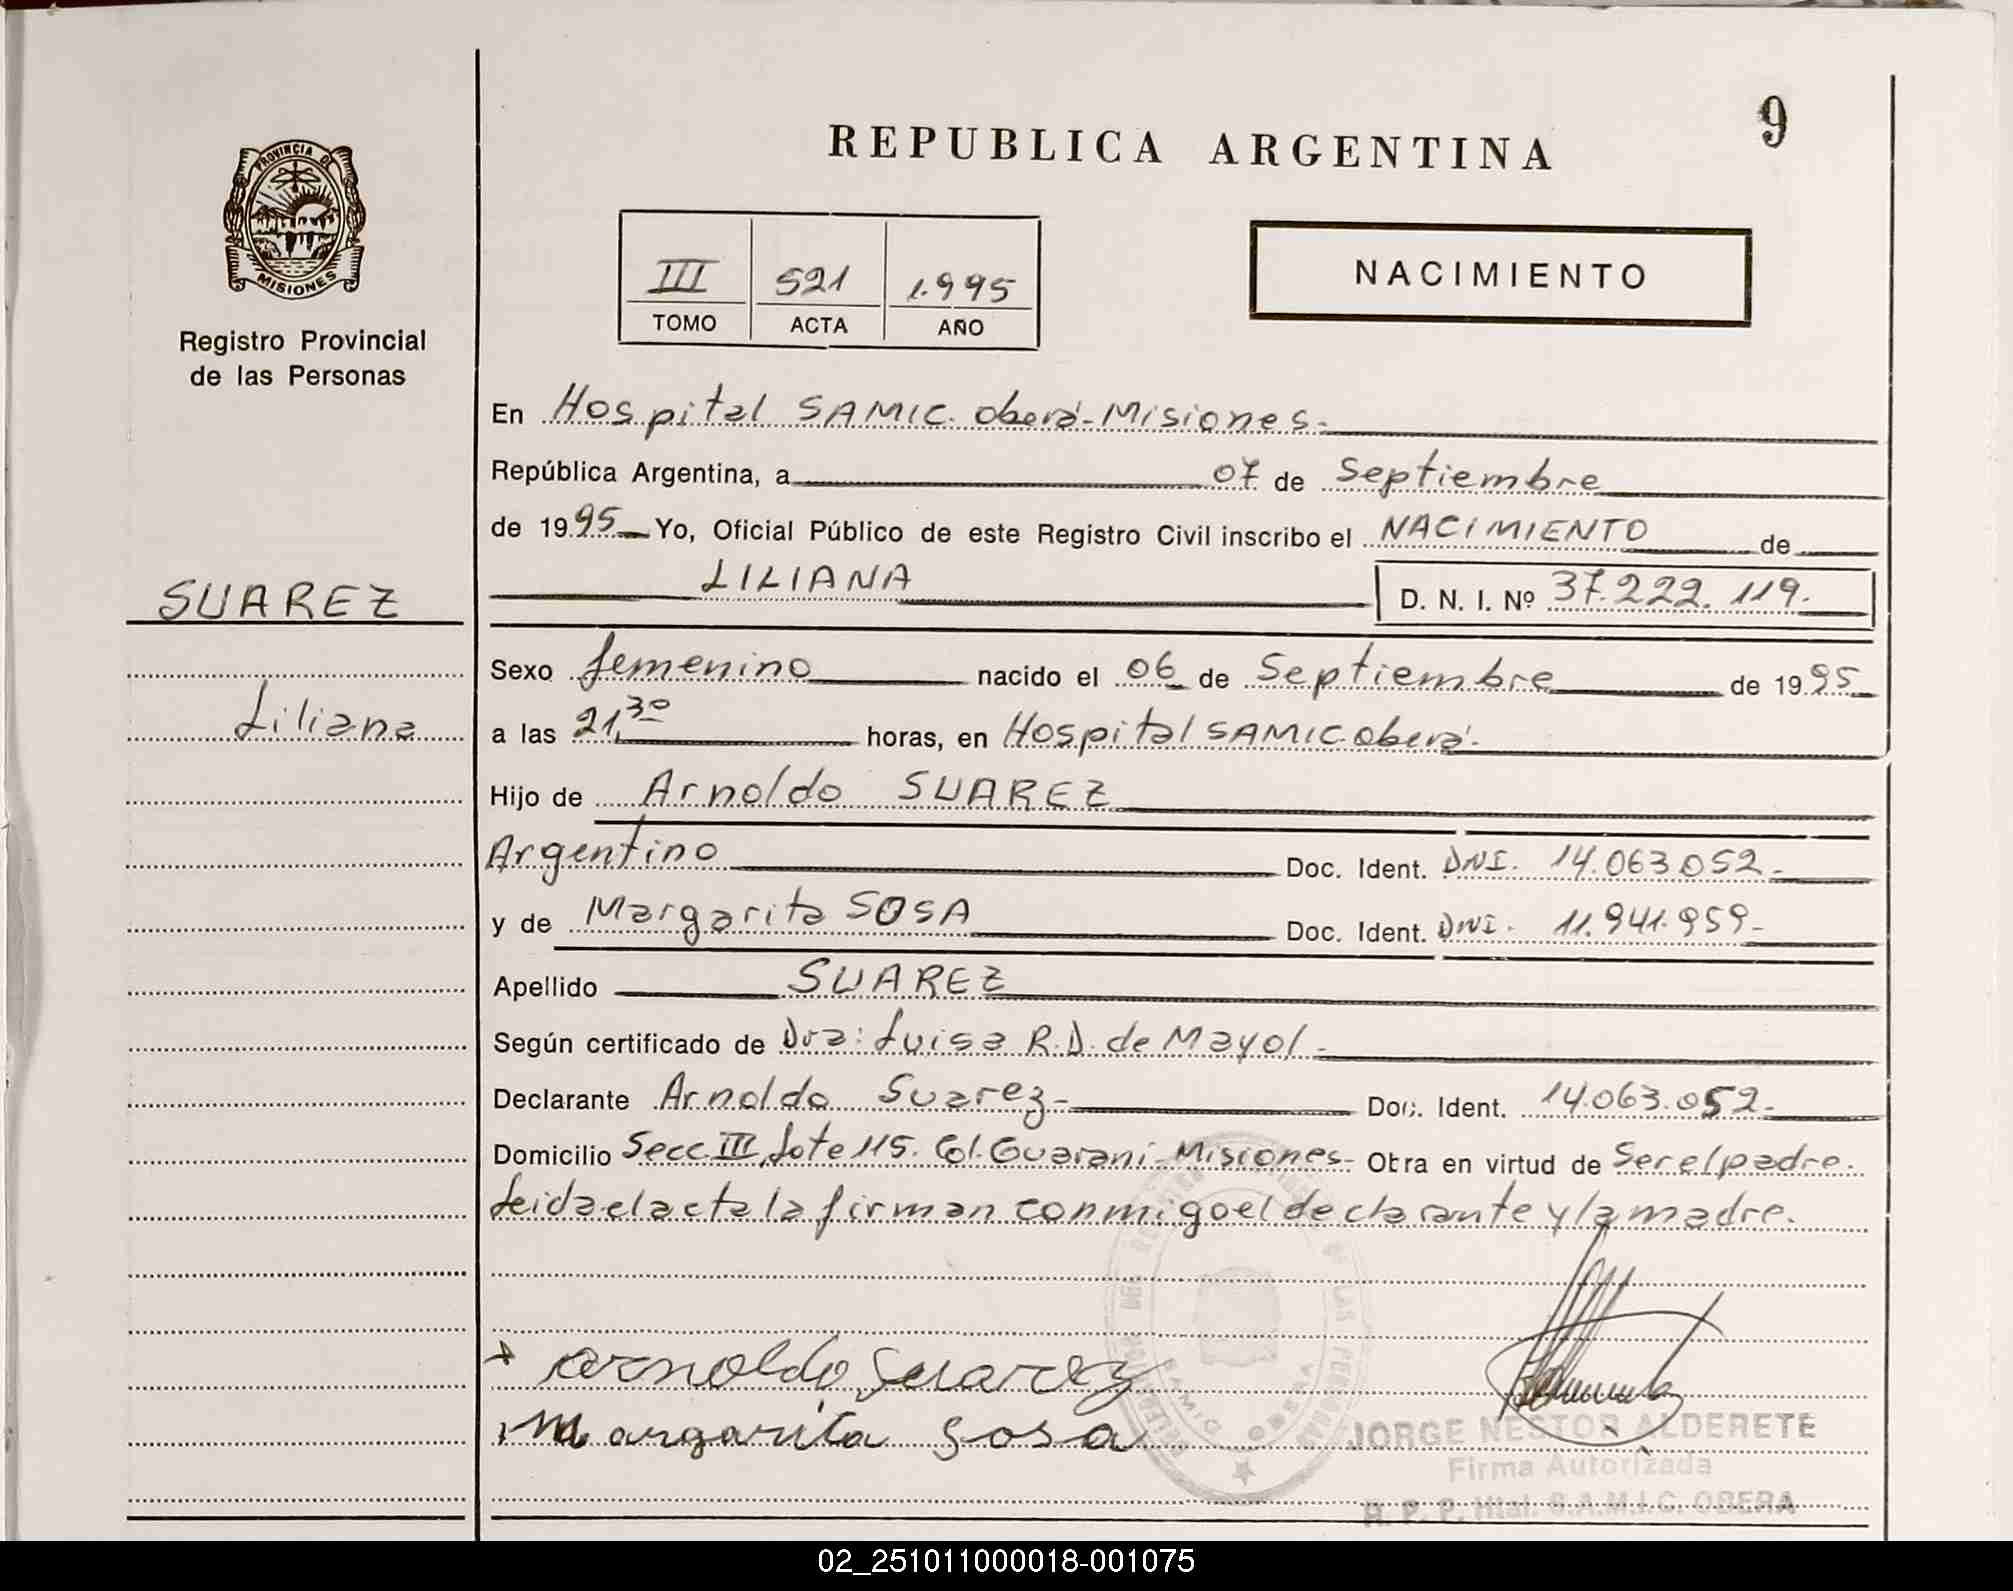 REPUBLICA ARGENTINA
9
PROVINCIA DE
MISIONES
Registro Provincial
de las Personas
III 521 1.995
TOMO ACTA AÑO
NACIMIENTO
En Hospital SAMIC. Oberá-Misiones.-
República Argentina, a 07 de Septiembre
de 1995 Yo, Oficial Público de este Registro Civil inscribo el NACIMIENTO de
SUAREZ
LILIANA D. N. I. Nº 37.222.119.
Sexo femenino nacido el 06 de Septiembre de 1995
Liliana
a las 21,30 horas, en Hospital SAMIC Oberá.
Hijo de Arnoldo SUAREZ
Argentino Doc. Ident. DNI. 14.063.052.-
y de Margarita SOSA Doc. Ident. DNI. 11.941.959-
Apellido SUAREZ
Según certificado de Dra: Luisa R.D. de Mayol.-
Declarante Arnoldo Suarez- Doc. Ident. 14.063.052.-
Domicilio Secc. III, Lote 115. Col. Guaraní-Misiones- Obra en virtud de Ser el padre.
Leida el acta la firman conmigo el declarante y la madre.
Arnoldo Suarez
Margarita Sosa
JORGE NESTOR ALDERETE
Firma Autorizada
R. P. P. Htal. S.A.M.I.C. OBERA
02_251011000018-001075